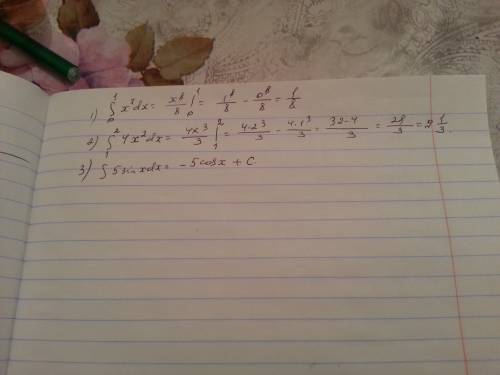 1) ∫₀¹ x⁷dx = x⁸/8 |₀¹ = 1⁸/8 - 0⁸/8 = 1/8
2) ∫₁² 4x²dx = 4x³/3 |₁² = 4·2³/3 - 4·1³/3 = 32-4/3 = 28/3 = 9 1/3.
3) ∫ 5sinxdx = -5cosx + C.